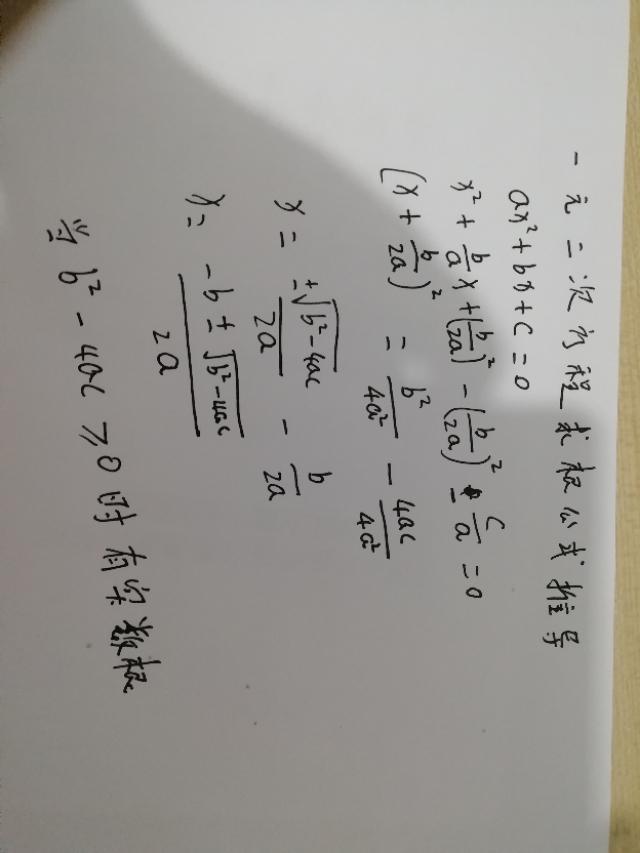 一元二次方程求根公式推导
ax²+bx+c=0
x² + b/a x + (b/2a)² - (b/2a)² - c/a = 0
(x + b/2a)² = b²/4a² - 4ac/4a²
x = ±√(b²-4ac)/2a - b/2a
x = (-b±√(b²-4ac))/2a
当 b² - 4ac ≥0 时有实数根